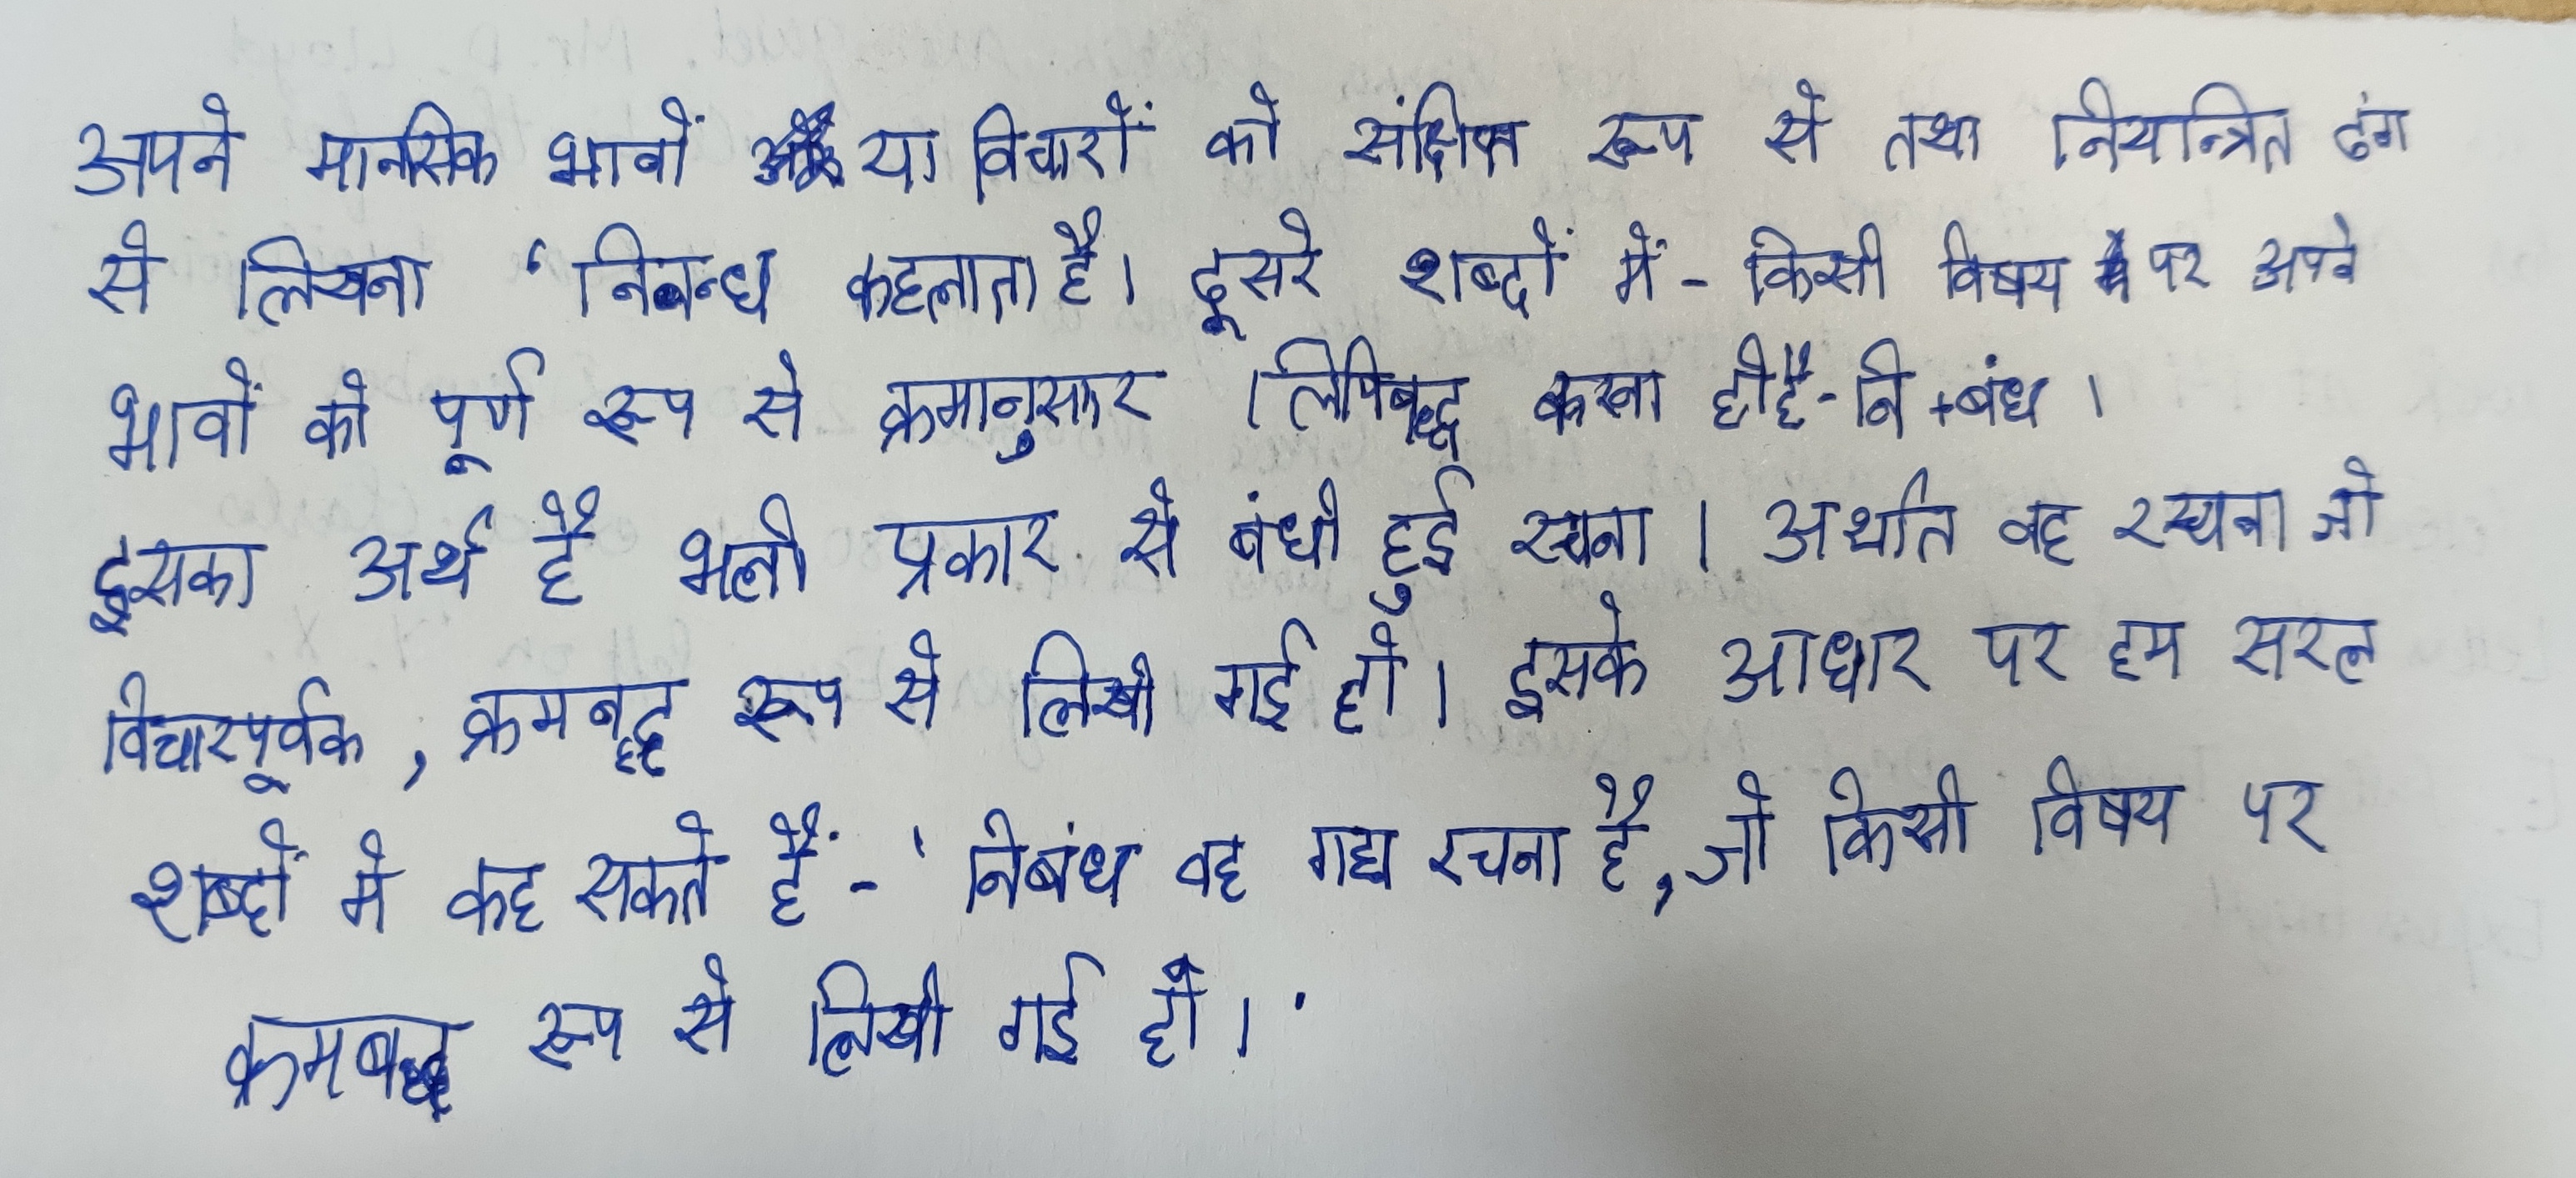 अपने मानसिक भावों या विचारों को संक्षिप्त रूप से तथा नियन्त्रित ढंग
से लिखना 'निबन्ध कहलाता है। दूसरे शब्दों में - किसी विषय पर अपने
भावों को पूर्ण रूप से क्रमानुसार लिपिबद्ध करना ही है - नि + बंध ।
इसका अर्थ है भली प्रकार से बंधी हुई रचना । अर्थात वह रचना जो
विचारपूर्वक , क्रमबद्ध रूप से लिखी गई हो । इसके आधार पर हम सरल
शब्दों में कह सकते हैं - 'निबंध वह गद्य रचना है, जो किसी विषय पर
क्रमबद्ध रूप से लिखी गई हो ।'